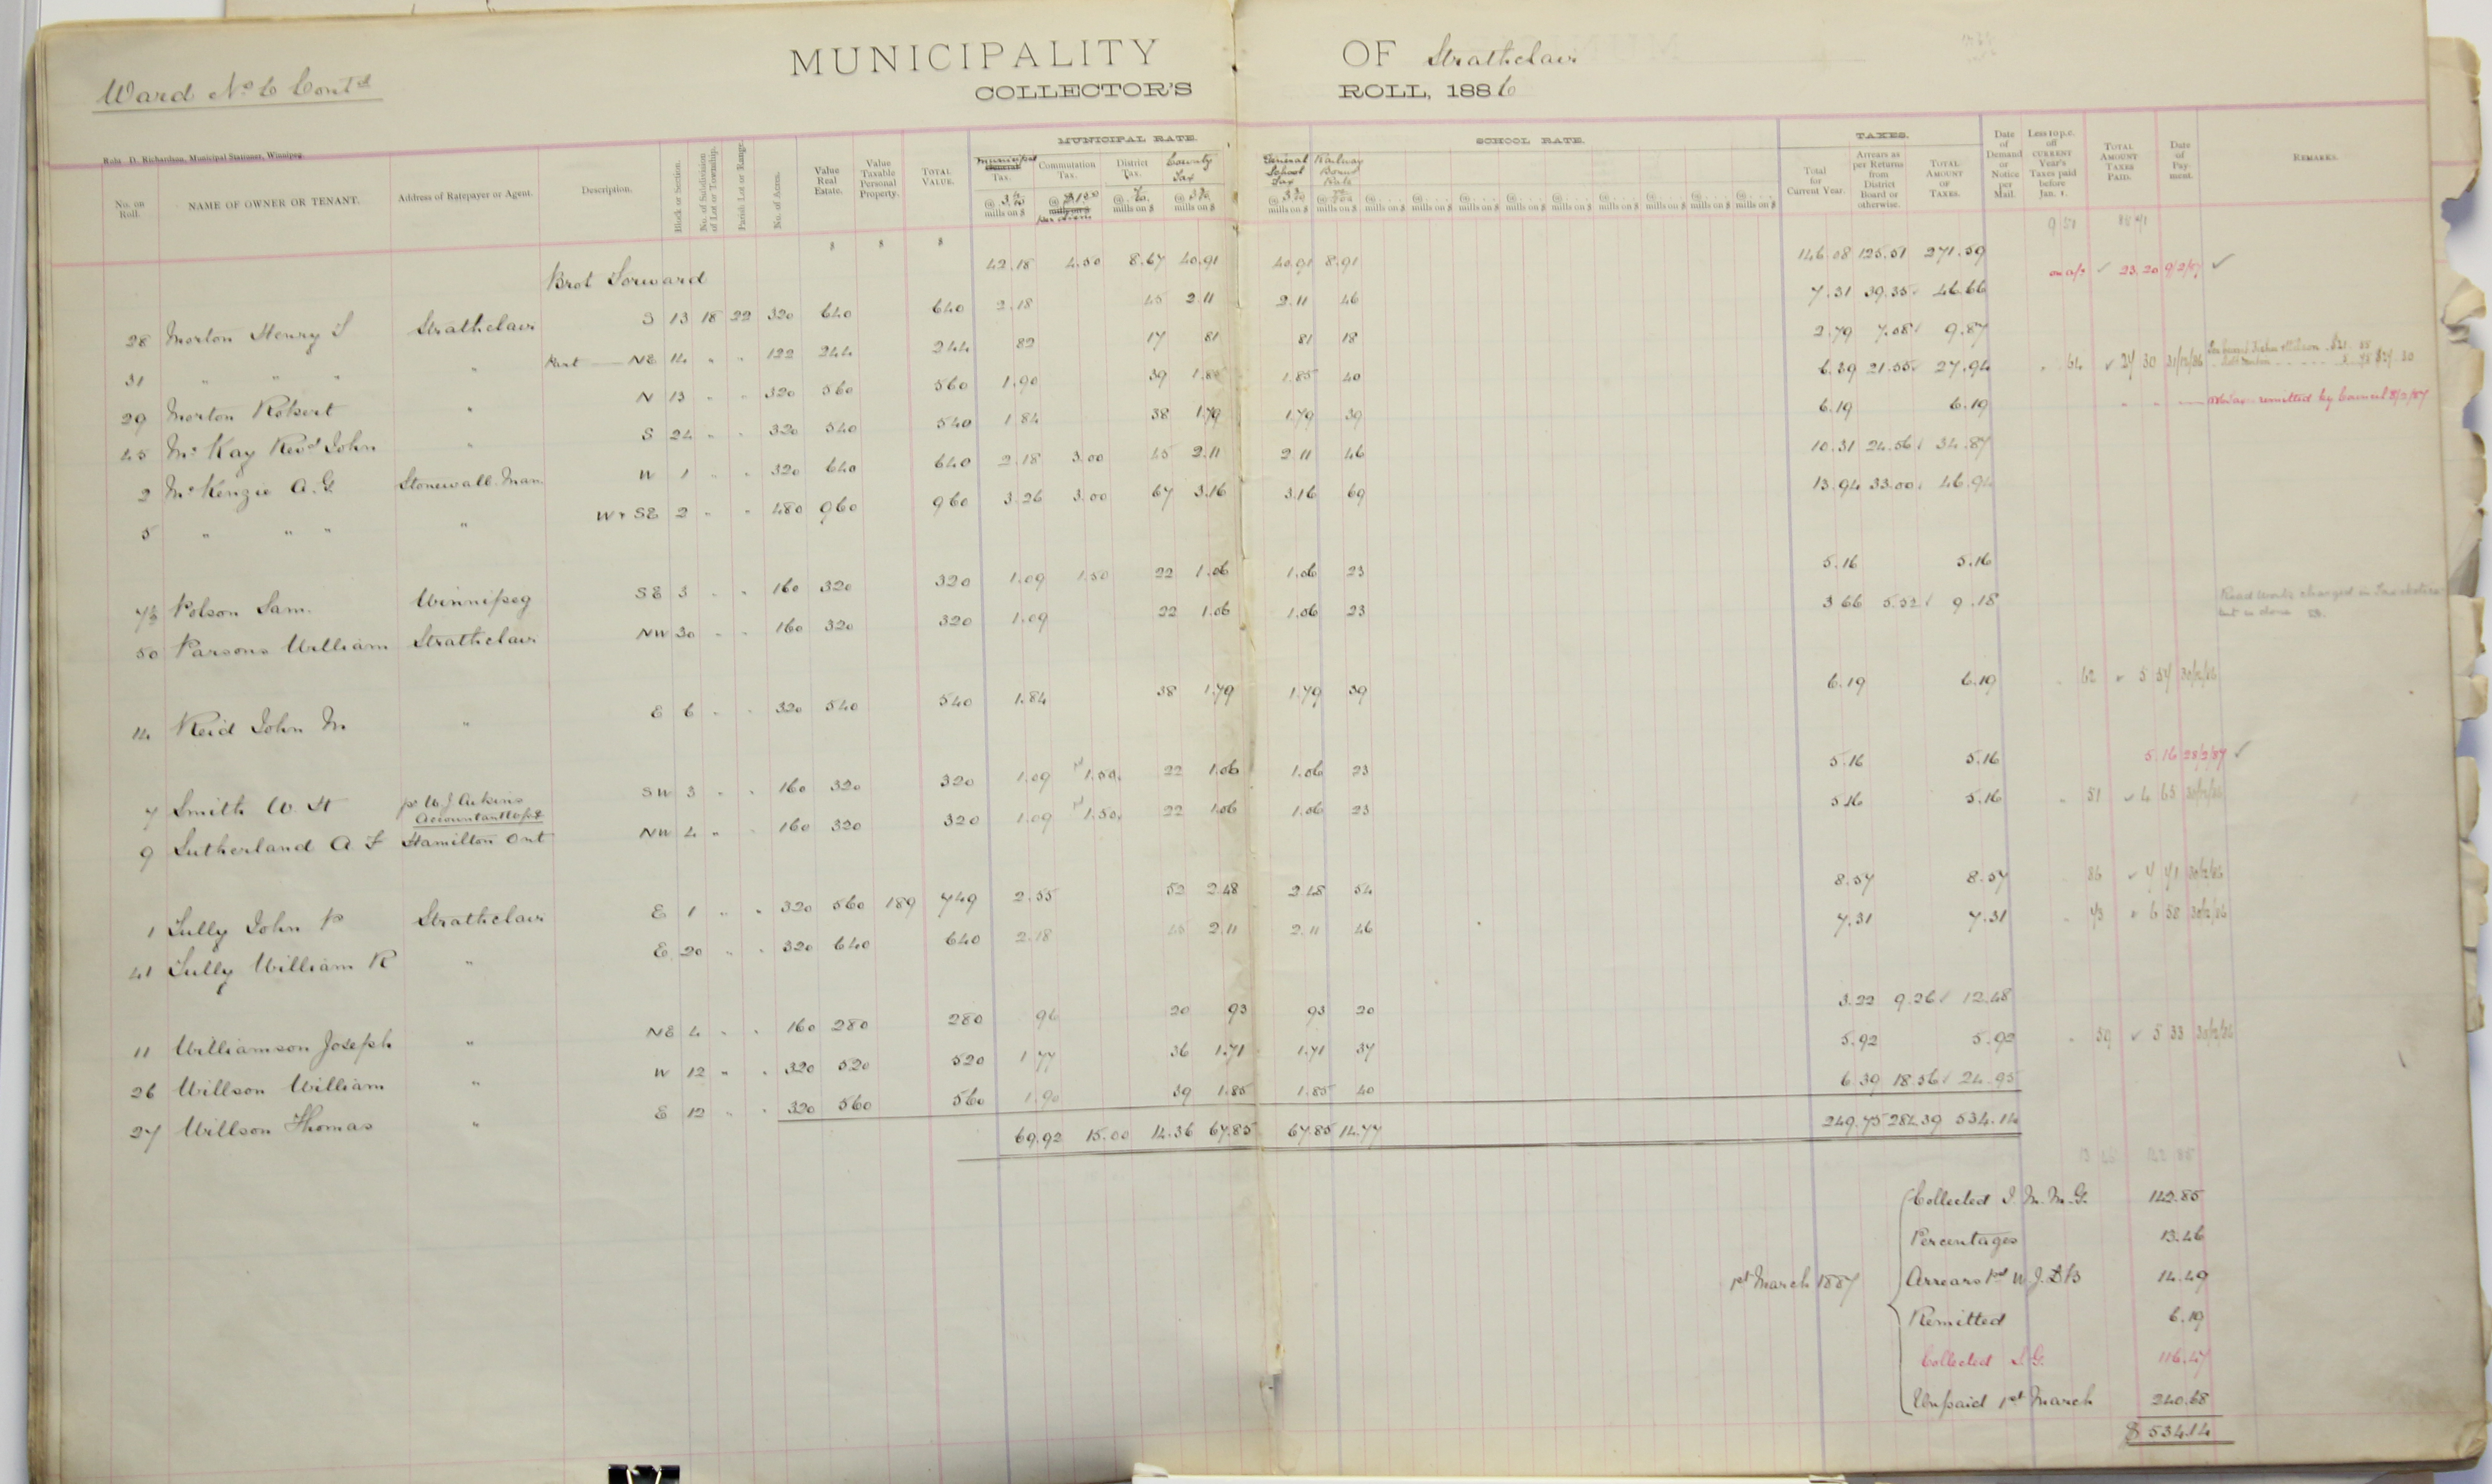 MUNICIPALITY OF Strathclair
Ward No 6 Contd
COLLECTOR'S ROLL, 1886
D. Richardson, Municipal Stationer, Winnipeg.
MUNICIPAL RATE. SCHOOL RATE. TAXES.
No. on Roll. NAME OF OWNER OR TENANT. Address of Ratepayer or Agent. Description. Block or Section. No. of Subdivision of Lot or Township. Parish Lot or Range. No. of Acres. Value Real Estate. Value Taxable Personal Property. TOTAL VALUE. Municipal Tax. Commutation Tax. District Tax. County Tax General School Tax Railway Bonus Rate Total for Current Year. Arrears as per Returns from District Board or otherwise. TOTAL AMOUNT OF TAXES. Date of Demand or Notice per Mail. Less 10 p.c. off CURRENT Year's Taxes paid before Jan. 1. TOTAL AMOUNT TAXES PAID. Date of Payment. REMARKS.
Brot Forward 42.18 4.50 8.67 40.91 40.91 8.91 146.08 125.51 271.59
28 Morton Henry S Strathclair S 13 18 22 320 640 640 2.18 45 2.11 2.11 46 7.31 39.35 46.66 on a/c ✓ 23.20 9/2/87 ✓
31 " " " " Part NE 14 " " 122 244 244 82 17 81 81 18 2.79 7.08 9.87
29 Morton Robert " N 13 " " 320 560 560 1.90 39 1.85 1.85 40 6.39 21.55 27.94 " 64 ✓ 27 30 31/12/86
45 McKay Revd John " S 24 " " 320 540 540 1.84 38 1.79 1.79 39 6.19 6.19 remitted by Council
2 McKenzie A.G. Stonewall Man W 1 " " 320 640 640 2.18 3.00 45 2.11 2.11 46 10.31 24.56 34.87
5 " " " " W & SE 2 " " 480 960 960 3.26 3.00 67 3.16 3.16 69 13.94 33.00 46.94
7½ Polson Sam. Winnipeg SE 3 " " 160 320 320 1.09 1.50 22 1.06 1.06 23 5.16 5.16
50 Parsons William Strathclair NW 30 " " 160 320 320 1.09 22 1.06 1.06 23 3.66 5.52 9.18 Road Work charged in
14 Reid John M " E 6 " " 320 540 540 1.84 38 1.79 1.79 39 6.19 6.19 " 62 ✓ 5 57 30/12/86
7 Smith W. H pr W J Aikins Accountant SW 3 " " 160 320 320 1.09 1.50 22 1.06 1.06 23 5.16 5.16 5.16 28/2/87 ✓
9 Sutherland A F Hamilton Ont NW 4 " " 160 320 320 1.09 1.50 22 1.06 1.06 23 5.16 5.16 " 51 ✓ 4 65 30/12/86
1 Tully John P Strathclair E 1 " " 320 560 189 749 2.55 52 2.48 2.48 54 8.57 8.57 86 ✓ 7 71 30/12/86
41 Tully William R " E 20 " " 320 640 640 2.18 45 2.11 2.11 46 7.31 7.31 " 73 ✓ 6 58 30/12/86
11 Williamson Joseph " NE 4 " " 160 280 280 96 20 93 93 20 3.22 9.26 12.48
26 Willson William " W 12 " " 320 520 520 1.77 36 1.71 1.71 37 5.92 5.92 " 59 ✓ 5 33 30/12/86
27 Willson Thomas " E 12 " " 320 560 560 1.90 39 1.85 1.85 40 6.39 18.56 24.95
69.92 15.00 14.36 67.85 67.85 14.77 249.75 284.39 534.14
Collected J. M. M. G. 142.85
Percentages 13.46
1st March 1887 Arrears Pd W.J.D.B 14.49
Remitted 6.19
Collected J.G. 116.47
Unpaid 1st March 240.68
$534.14